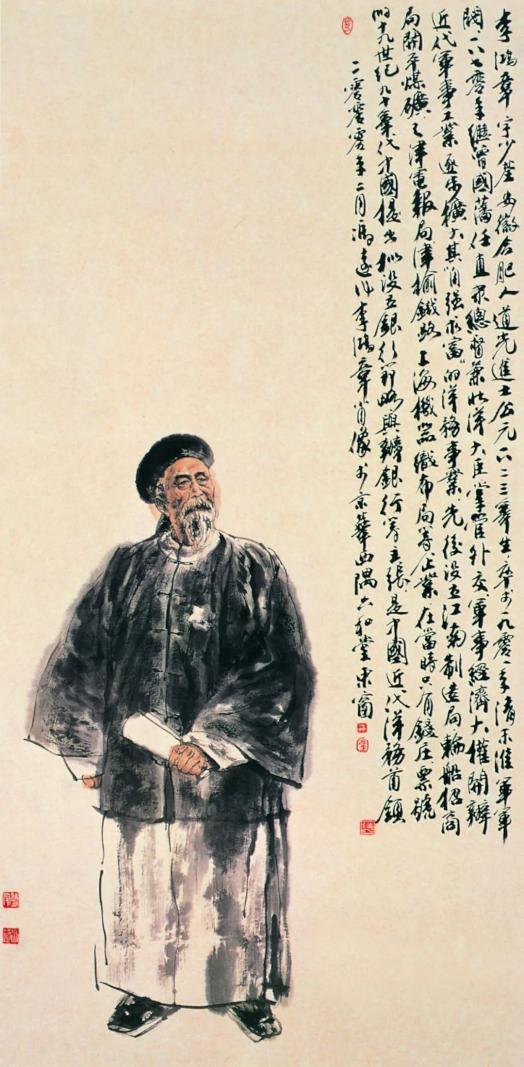 李鴻章字少荃安徽合肥人道光進士公元一八二三年生卒於一九零一年清末淮軍軍
閥一八七零年繼曾國藩任直隸總督兼北洋大臣掌管外交軍事經濟大權開辦
近代軍事工業逐步擴大其"自强求富"的洋務事業先後設立江南制造局輪船招商
局開平煤礦天津電報局津榆鐵路上海機器織布局等企業在當時只有錢庄票號
的十九世紀九十年代中國提出擬設立銀行節略興辦銀行等主張是中國近代洋務首領
二零零零年二月馮遠作李鴻章肖像於京華西隅六和堂東窗